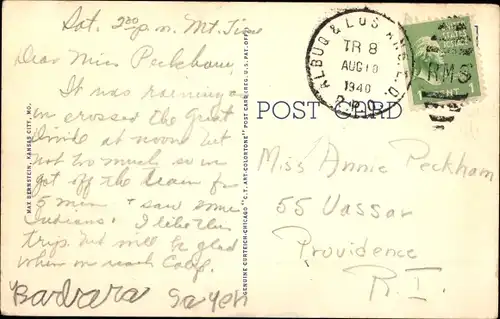 Sat. 2:30 p.m. Mt. Time
Dear Miss Peckham,
It was raining as
we crossed the Great
Divide at noon but
not too much so we
got off the train for
5 min & saw some
Indians. I like the
trip but will be glad
when we reach Calif.
Barbara
MAX BERNSTEIN, KANSAS CITY, MO.
GENUINE CURTEICH-CHICAGO "C.T. ART-COLORTONE" POST CARD (REG. U.S. PAT. OFF.)
POST CARD
ALBUQ & LOS ANG.
TR 8
AUG 10
1940
R.P.O.
RMS
UNITED STATES
POSTAGE
1 CENT 1
Miss Annie Peckham
55 Vassar
Providence
R.I.